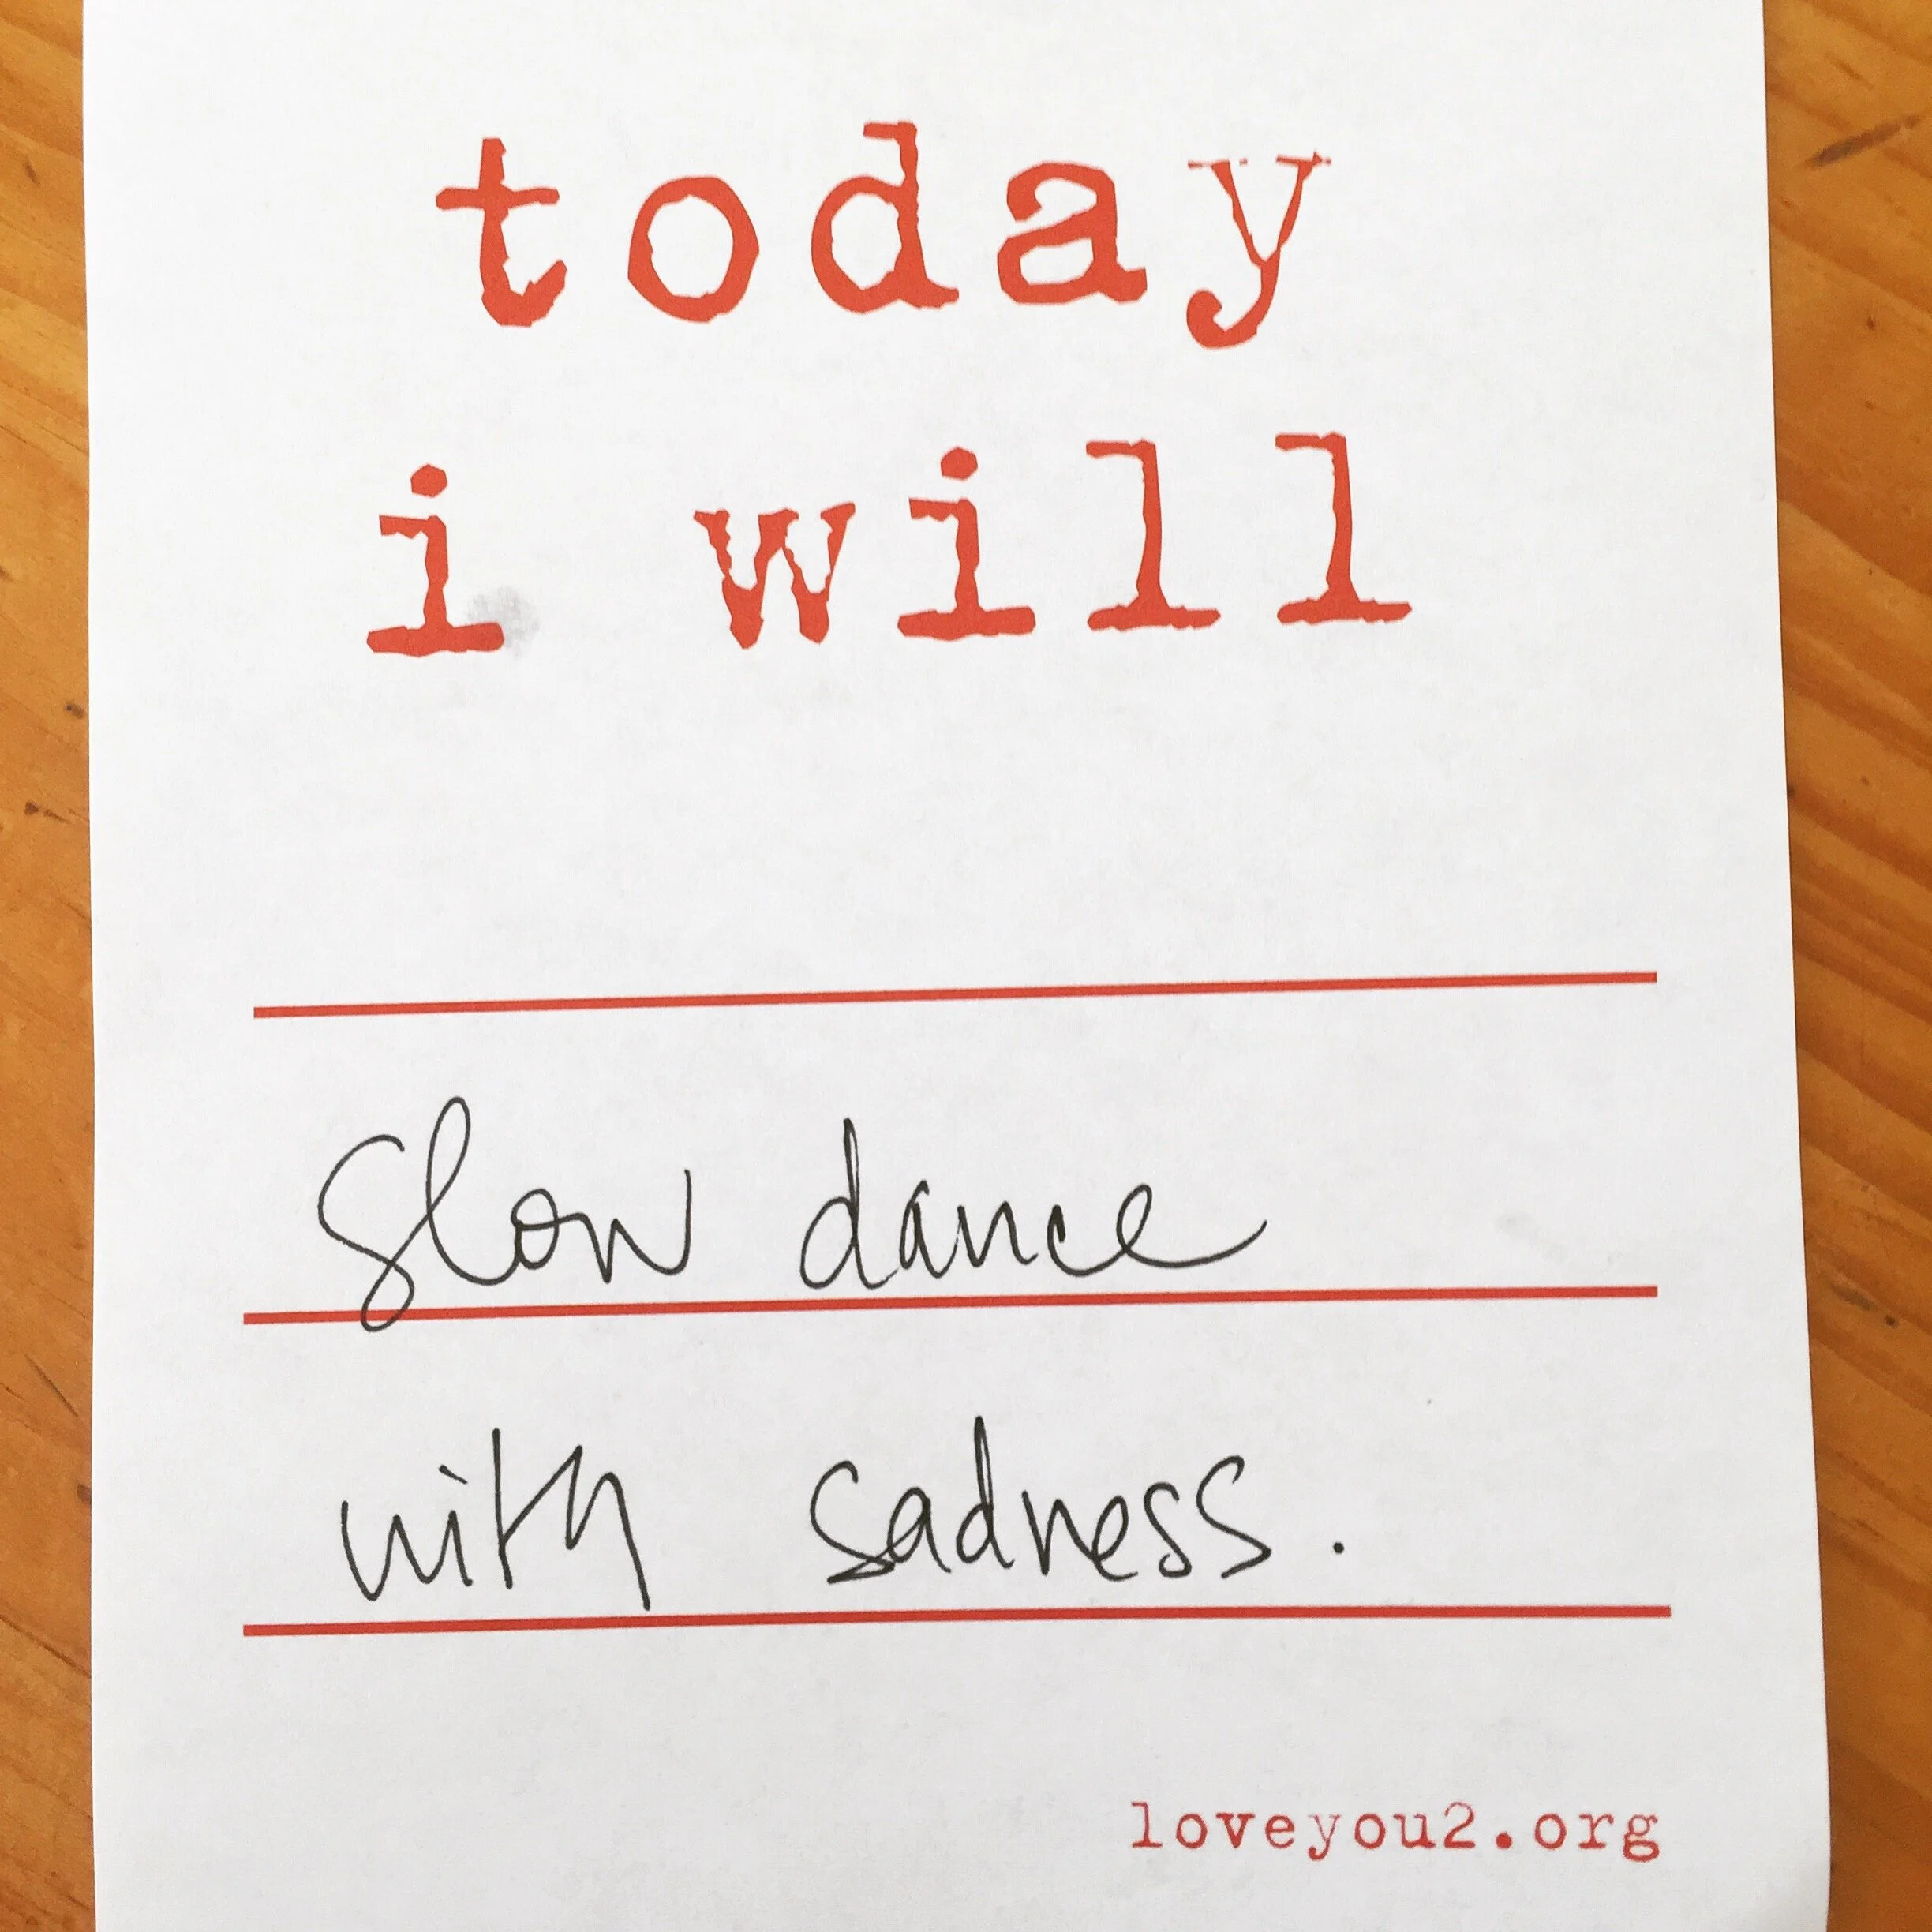 today
i will
Slow dance
with sadness.
loveyou2.org